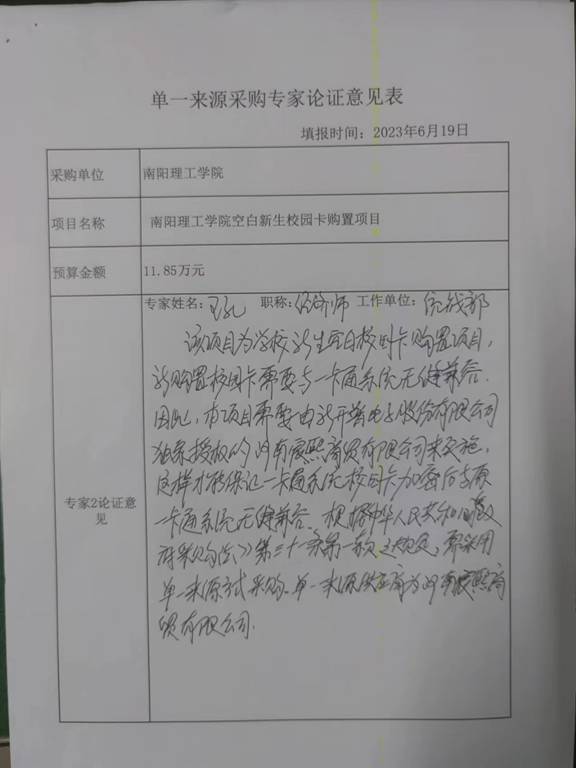 单一来源采购专家论证意见表
填报时间：2023年6月19日
采购单位 南阳理工学院
项目名称 南阳理工学院空白新生校园卡购置项目
预算金额 11.85万元
专家2论证意
见
专家姓名： 职称：经济师 工作单位：统战部
该项目为学校新生空白校园卡购置项目，
新购置校园卡需要与一卡通系统无缝兼容.
因此，本项目需要由新开普电子股份有限公司
独家授权的河南 熙商贸有限公司来实施，
这样才能保证一卡通系统校园卡加密后与原
一卡通系统无缝兼容. 根据《中华人民共和国政
府采购法》第三十一条第一款之规定，需采用
单一来源方式采购. 单一来源供应商为河南 熙商
贸有限公司.